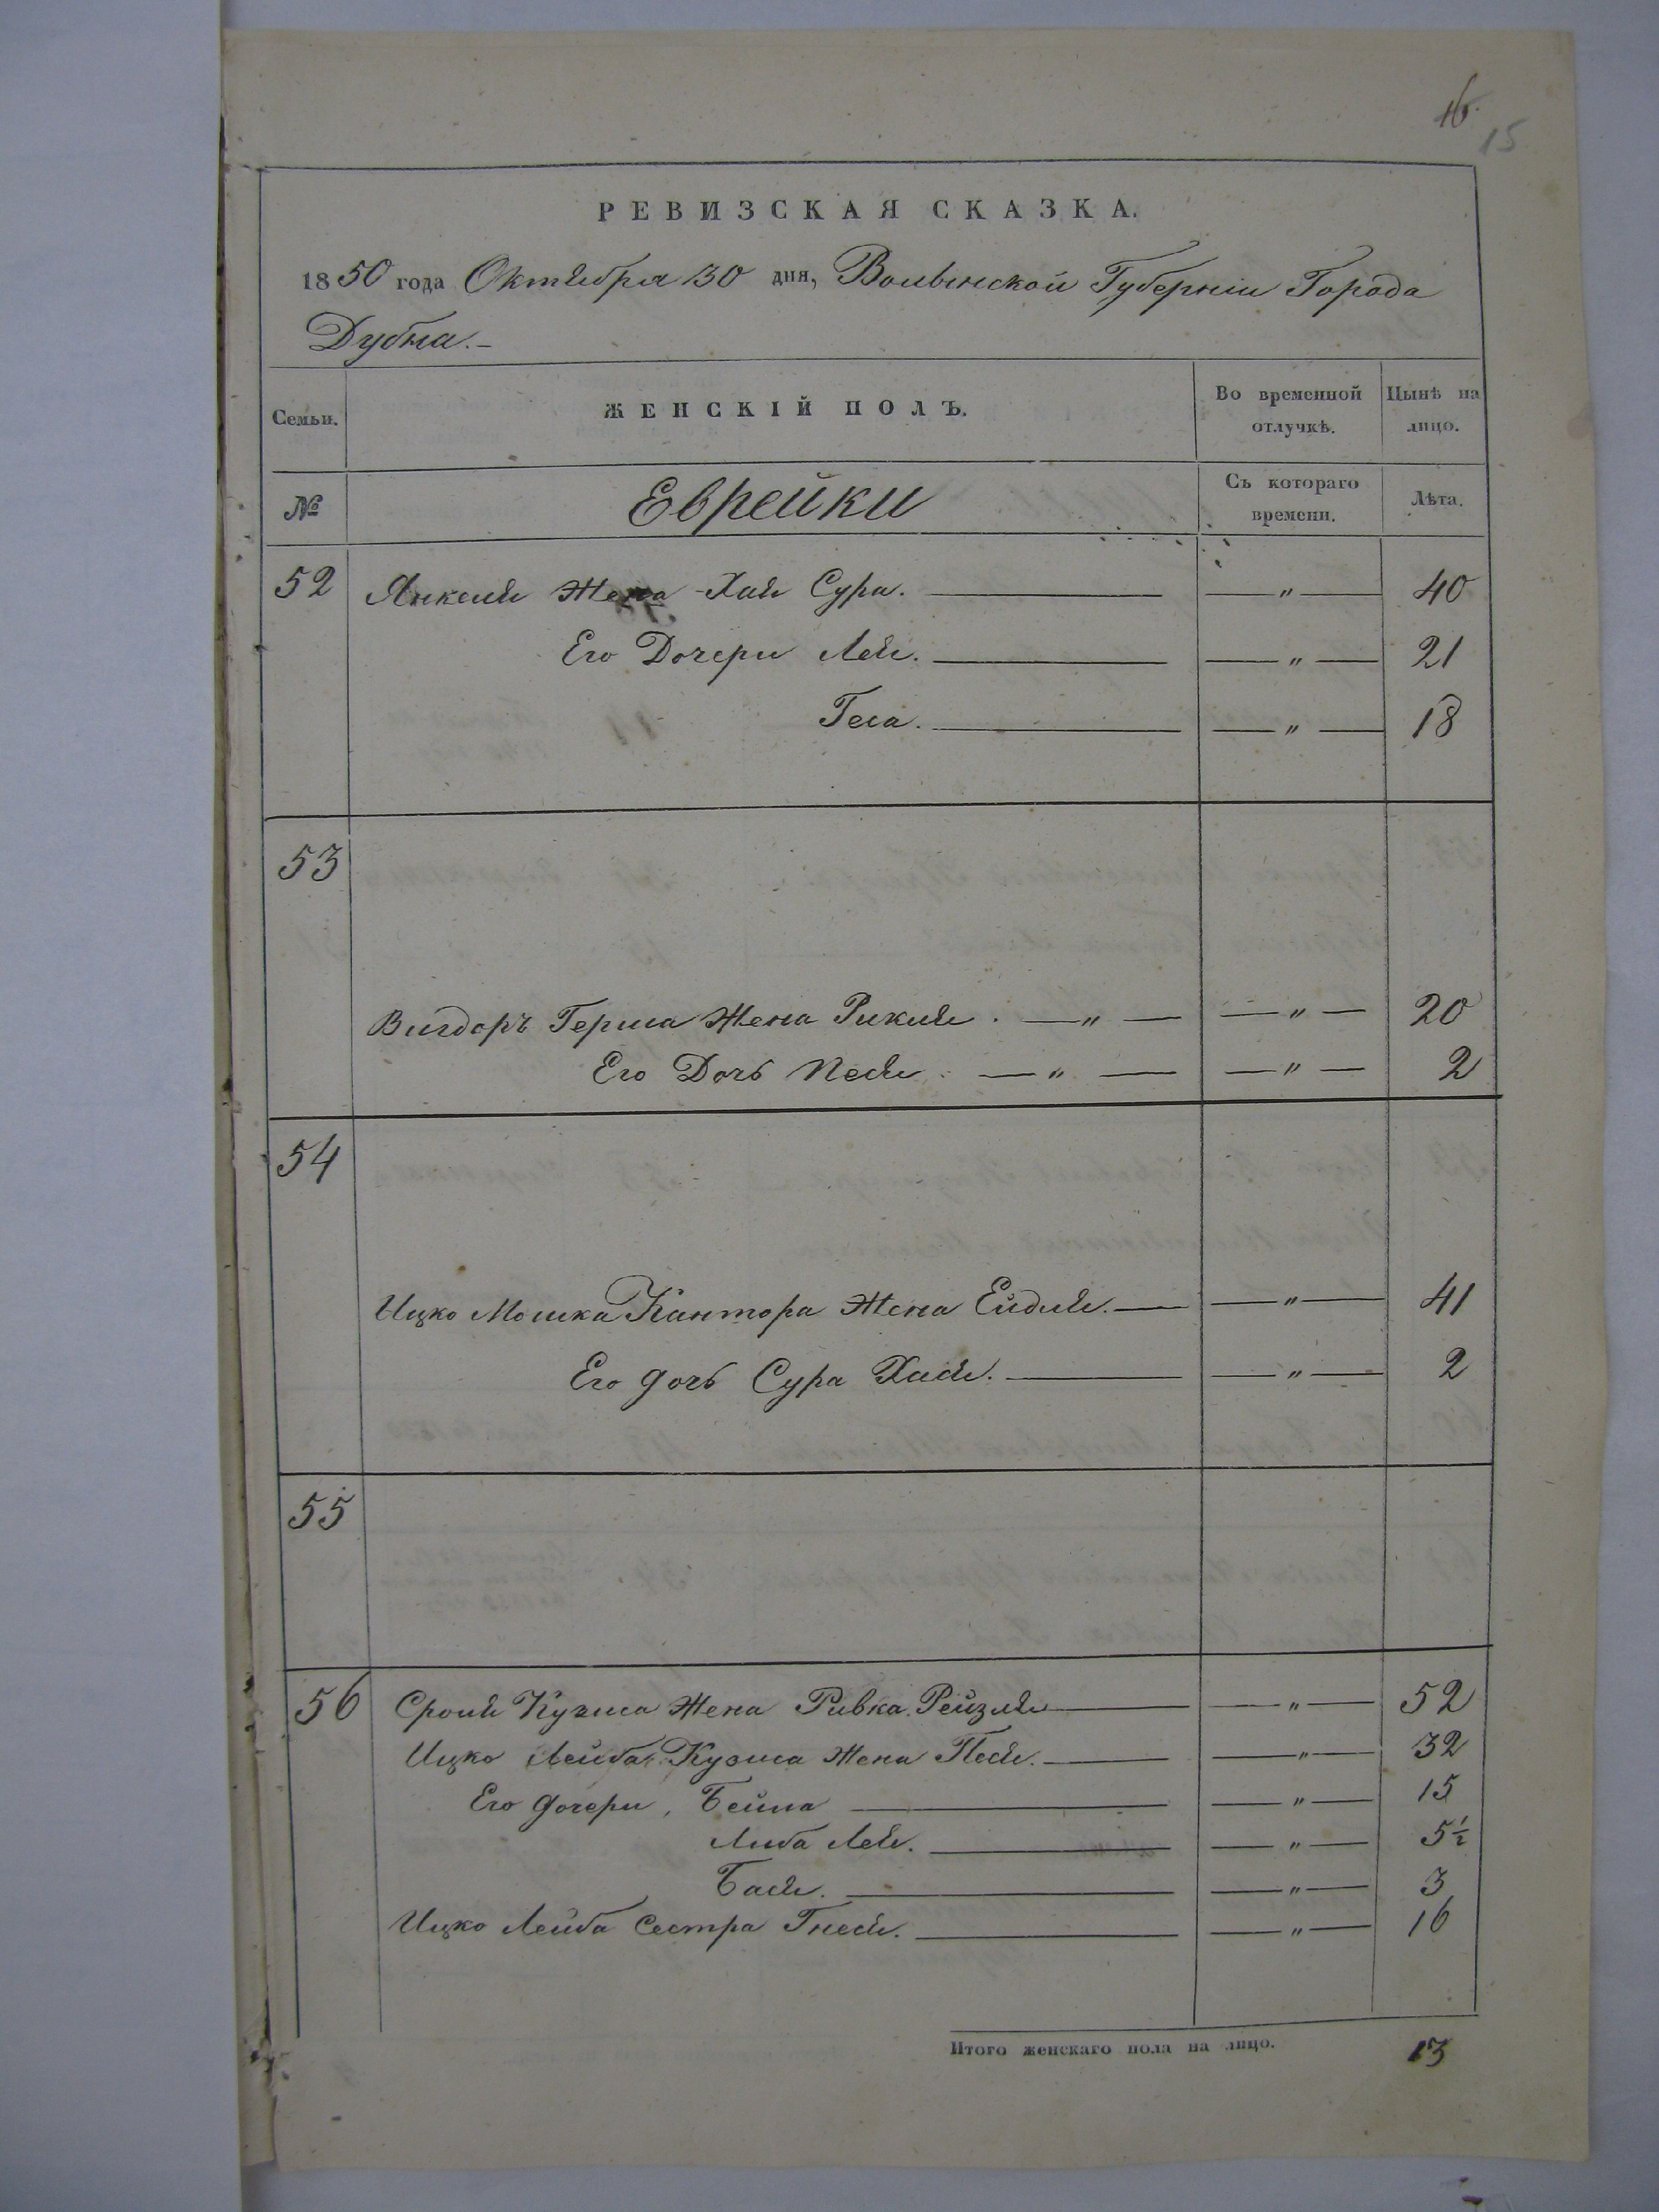 16.
15
РЕВИЗСКАЯ СКАЗКА.
1850 года Октября 30 дня, Волынской Губерніи Города
Дубна.-
Семьи.
ЖЕНСКІЙ ПОЛЪ.
Во временной отлучкѣ.
Нынѣ на лицо.
№
Еврейки
Съ котораго времени.
Лѣта.
52 Янкеля Жена Хая Сура. — " — 40
Его Дочери Лея. — " — 21
Геса. — " — 18
53
Вигдоръ Герша Жена Рикля. — " — — " — 20
Его Дочь Песя. — " — — " — 2
54
Ицко Мошка Кантора Жена Ейдля. — " — 41
Его дочь Сура Хася. — " — 2
55
56 Сроля Кузиса Жена Ривка Рейзля — " — 52
Ицко Лейба Кузиса Жена Песя. — " — 32
Его дочери, Бейла — " — 15
Либа Лея. — " — 5½
Бася. — " — 3
Ицко Лейба Сестра Гнеся. — " — 16
Итого женскаго пола на лицо. 13